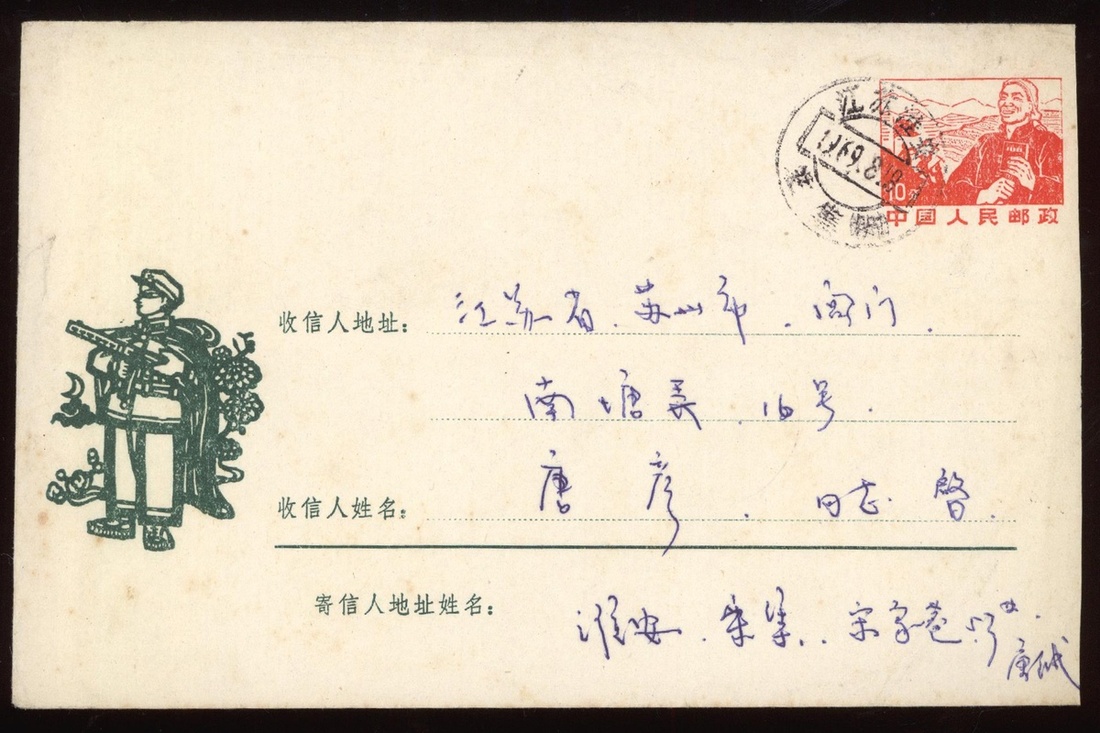 江苏淮安
1969.8.19
10
中国人民邮政
收信人地址: 江苏省. 苏州市. 阊门.
南塘弄 16号.
收信人姓名: 唐彦. 同志 啓.
寄信人地址姓名: 淮安. 朱集.. 宋家
唐